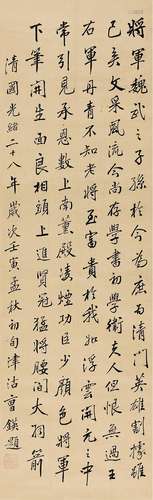 將軍魏武之子孫於今為庶為清門英雄割據
已矣文采風流今尚存學書初學衛夫人但恨無過王
右軍丹青不知老將至富貴於我如浮雲開元之中
常引見承恩數上南薰殿凌煙功臣少顏色將軍
下筆開生面良相頭上進賢冠猛將腰間大羽箭
清國光緒二十八年歲次壬寅孟秋初旬津沽曹題